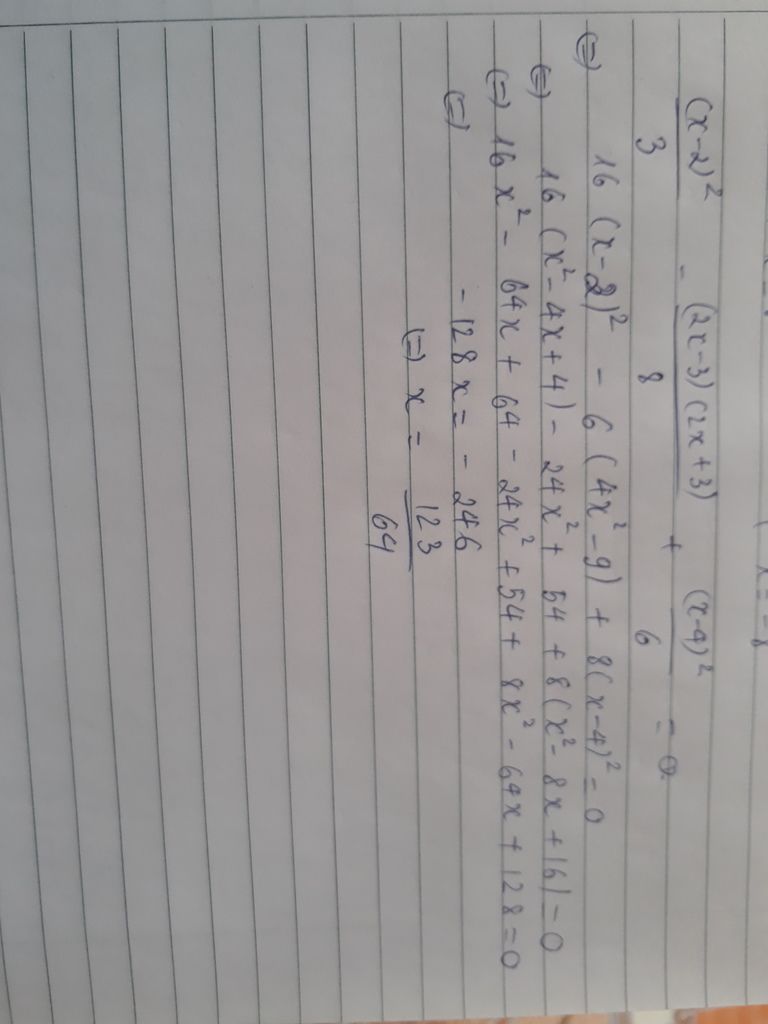 (x-2)²/3 - (2x-3)(2x+3)/8 + (x-4)²/6 = 0
(=) 16(x-2)² - 6(4x²-9) + 8(x-4)² = 0
(=) 16(x²-4x+4) - 24x² + 54 + 8(x²-8x+16) = 0
(=) 16x² - 64x + 64 - 24x² + 54 + 8x² - 64x + 128 = 0
(=) -128x = -246
(=) x = 123/64